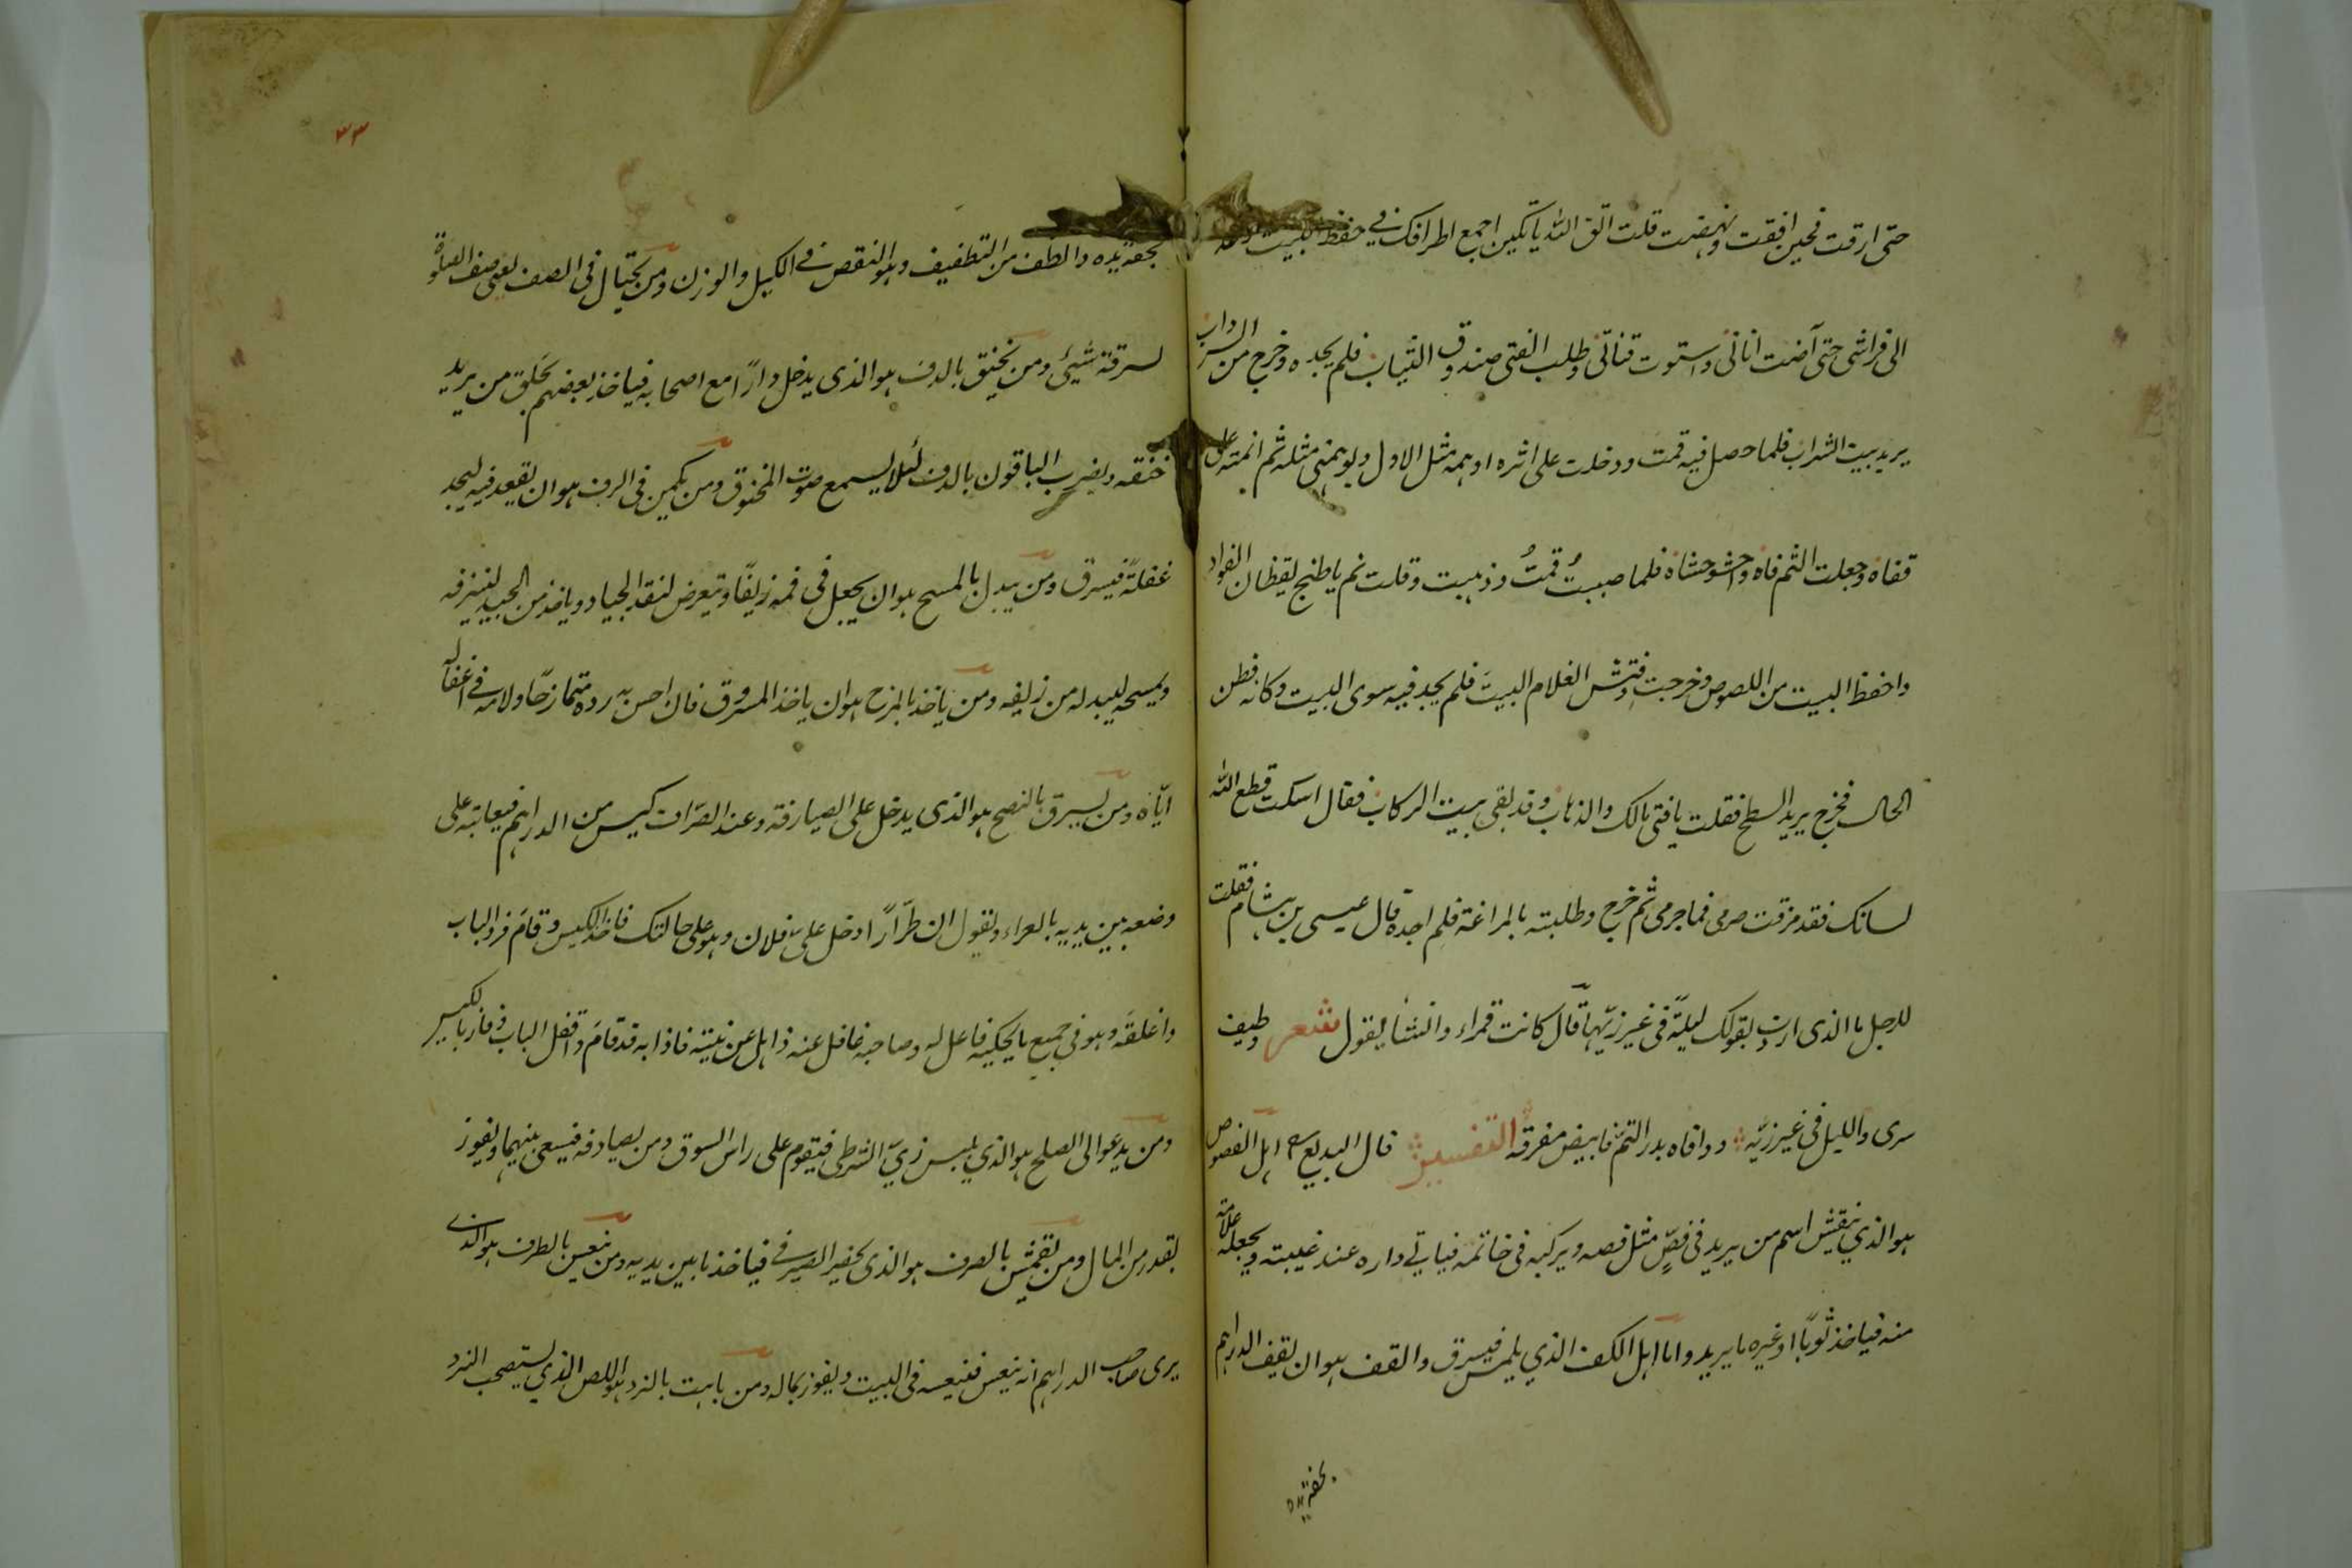 حتى ارقت فحين افقت ونهضت قلت اتق الله يا تكين اجمع اطرافك في حفظ البيت
الى فراشي حتى آضت اناتي واستوت قناتي وطلب الفتى صندوق الثياب فلم يجده وخرج من السرداب
يريد بيت الشراب فلما حصل فيه قمت ودخلت على اثره اوهمه مثل الاول ويوهمني مثله ثم انمته على
قفاه وجعلت الثم فاه واحشو حشاه فلما صببت قمت وذهبت وقلت نم يا طنج يقظان الفواد
واحفظ البيت من اللصوص وخرجت وفتش الغلام البيت فلم يجد فيه سوى البيت وكانه فطن
الحال فخرج يريد السطح فقلت يا فتى مالك والذهاب وقد بقى بيت الركاب فقال اسكت قطع الله
لسانك فقد مزقت صرمي فما جرمي ثم خرج وطلبته بالمراغة فلم اجده قال عيسى بن هشام فقلت
للرجل ما الذي اردت بقولك ليلة في غير زيها قال كانت قمراء وانشا يقول شعر وطيف
سرى والليل في غير زيه ووافاه بدر التم فابيض مفرقه التفسير قال البديع اهل الفصوص
هو الذي ينقش اسم من يريد في فص مثل فصه ويركبه في خاتمه فياتي داره عند غيبته ويجعله علامة
منه فياخذ ثوبا او غيره ما يريد واما اهل الكف الذي يلمس فيسرق والقف هو ان يقف الدراهم
بخفة يده
٣٣
بخفة يده والطف من التطفيف وهو النقص في الكيل والوزن ومن يحتال في الصف يعني صف الصلوة
لسرقة شيئ ومن يخنق بالدف هو الذي يدخل دارا مع اصحابه فياخذ بعضهم بحلق من يريد
خنقه ويضرب الباقون بالدف لئلا يسمع صوت المخنوق ومن يكمن في الرف هو ان يقعد فيه ليجد
غفلة فيسرق ومن يبدل بالمسح هو ان يجعل في فمه زيفا ويتعرض لنقد الجياد وياخذ من الجيد لينزفه
ويمسحه ليبدله من زيفه ومن ياخذ بالمزح هو ان ياخذ المسروق فان احس به رده متمازحا ولامه في اغفاله
اياه ومن يسرق بالنصح هو الذي يدخل على الصيارفة وعند الصراف كيس من الدراهم فيعاتبه على
وضعه بين يديه بالعراء ويقول ان طرارا دخل على فلان وهو على حالتك فاخذ الكيس وقام فرد الباب
واغلقه وهو في جميع ما يحكيه فاعل له وصاحبه غافل عنه ذاهل عن نيته فاذا به قد قام واقفل الباب وفاز بالكيس
ومن يدعو الى الصلح هو الذي يلبس زي الشرطي فيقوم على راس السوق ومن يصادفه فيسعى بينهما ويفوز
بقدر من المال ومن يقمش بالصرف هو الذي يحضر الصيرفي فياخذ ما بين يديه ومن ينعس بالطرف هو الذي
يرى صاحب الدراهم انه ينعس فينعسه في البيت ويفوز بماله ومن باهت بالنرد هو اللص الذي يستصحب النرد